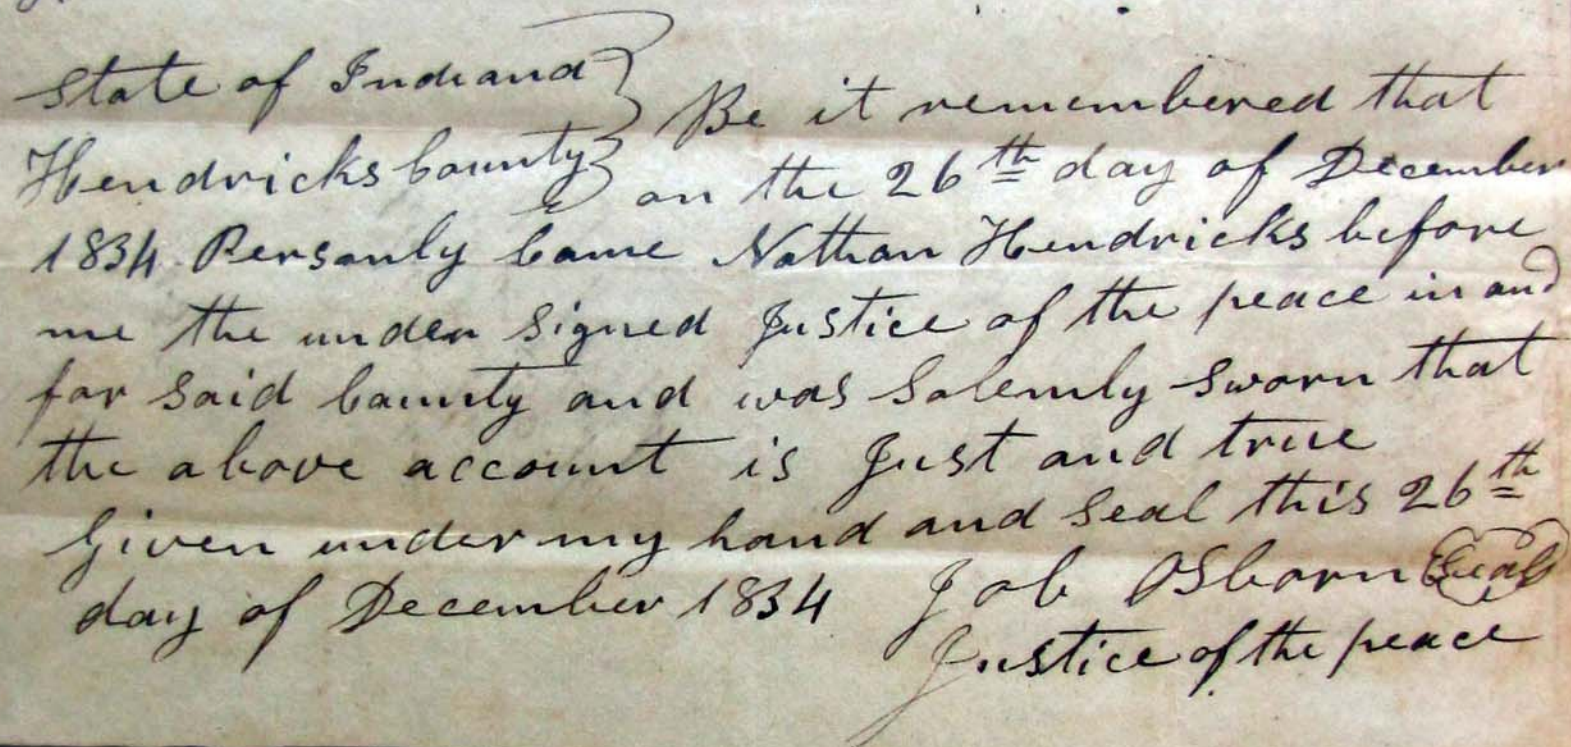 State of Indiana } Be it remembered that
Hendricks County } on the 26th day of December
1834 Personly Came Nathan Hendricks before
me the under signed Justice of the peace in and
for said County and was Solemly sworn that
the above account is Just and true
Given under my hand and seal this 26th
day of December 1834 Job Osborn Seal
Justice of the peace